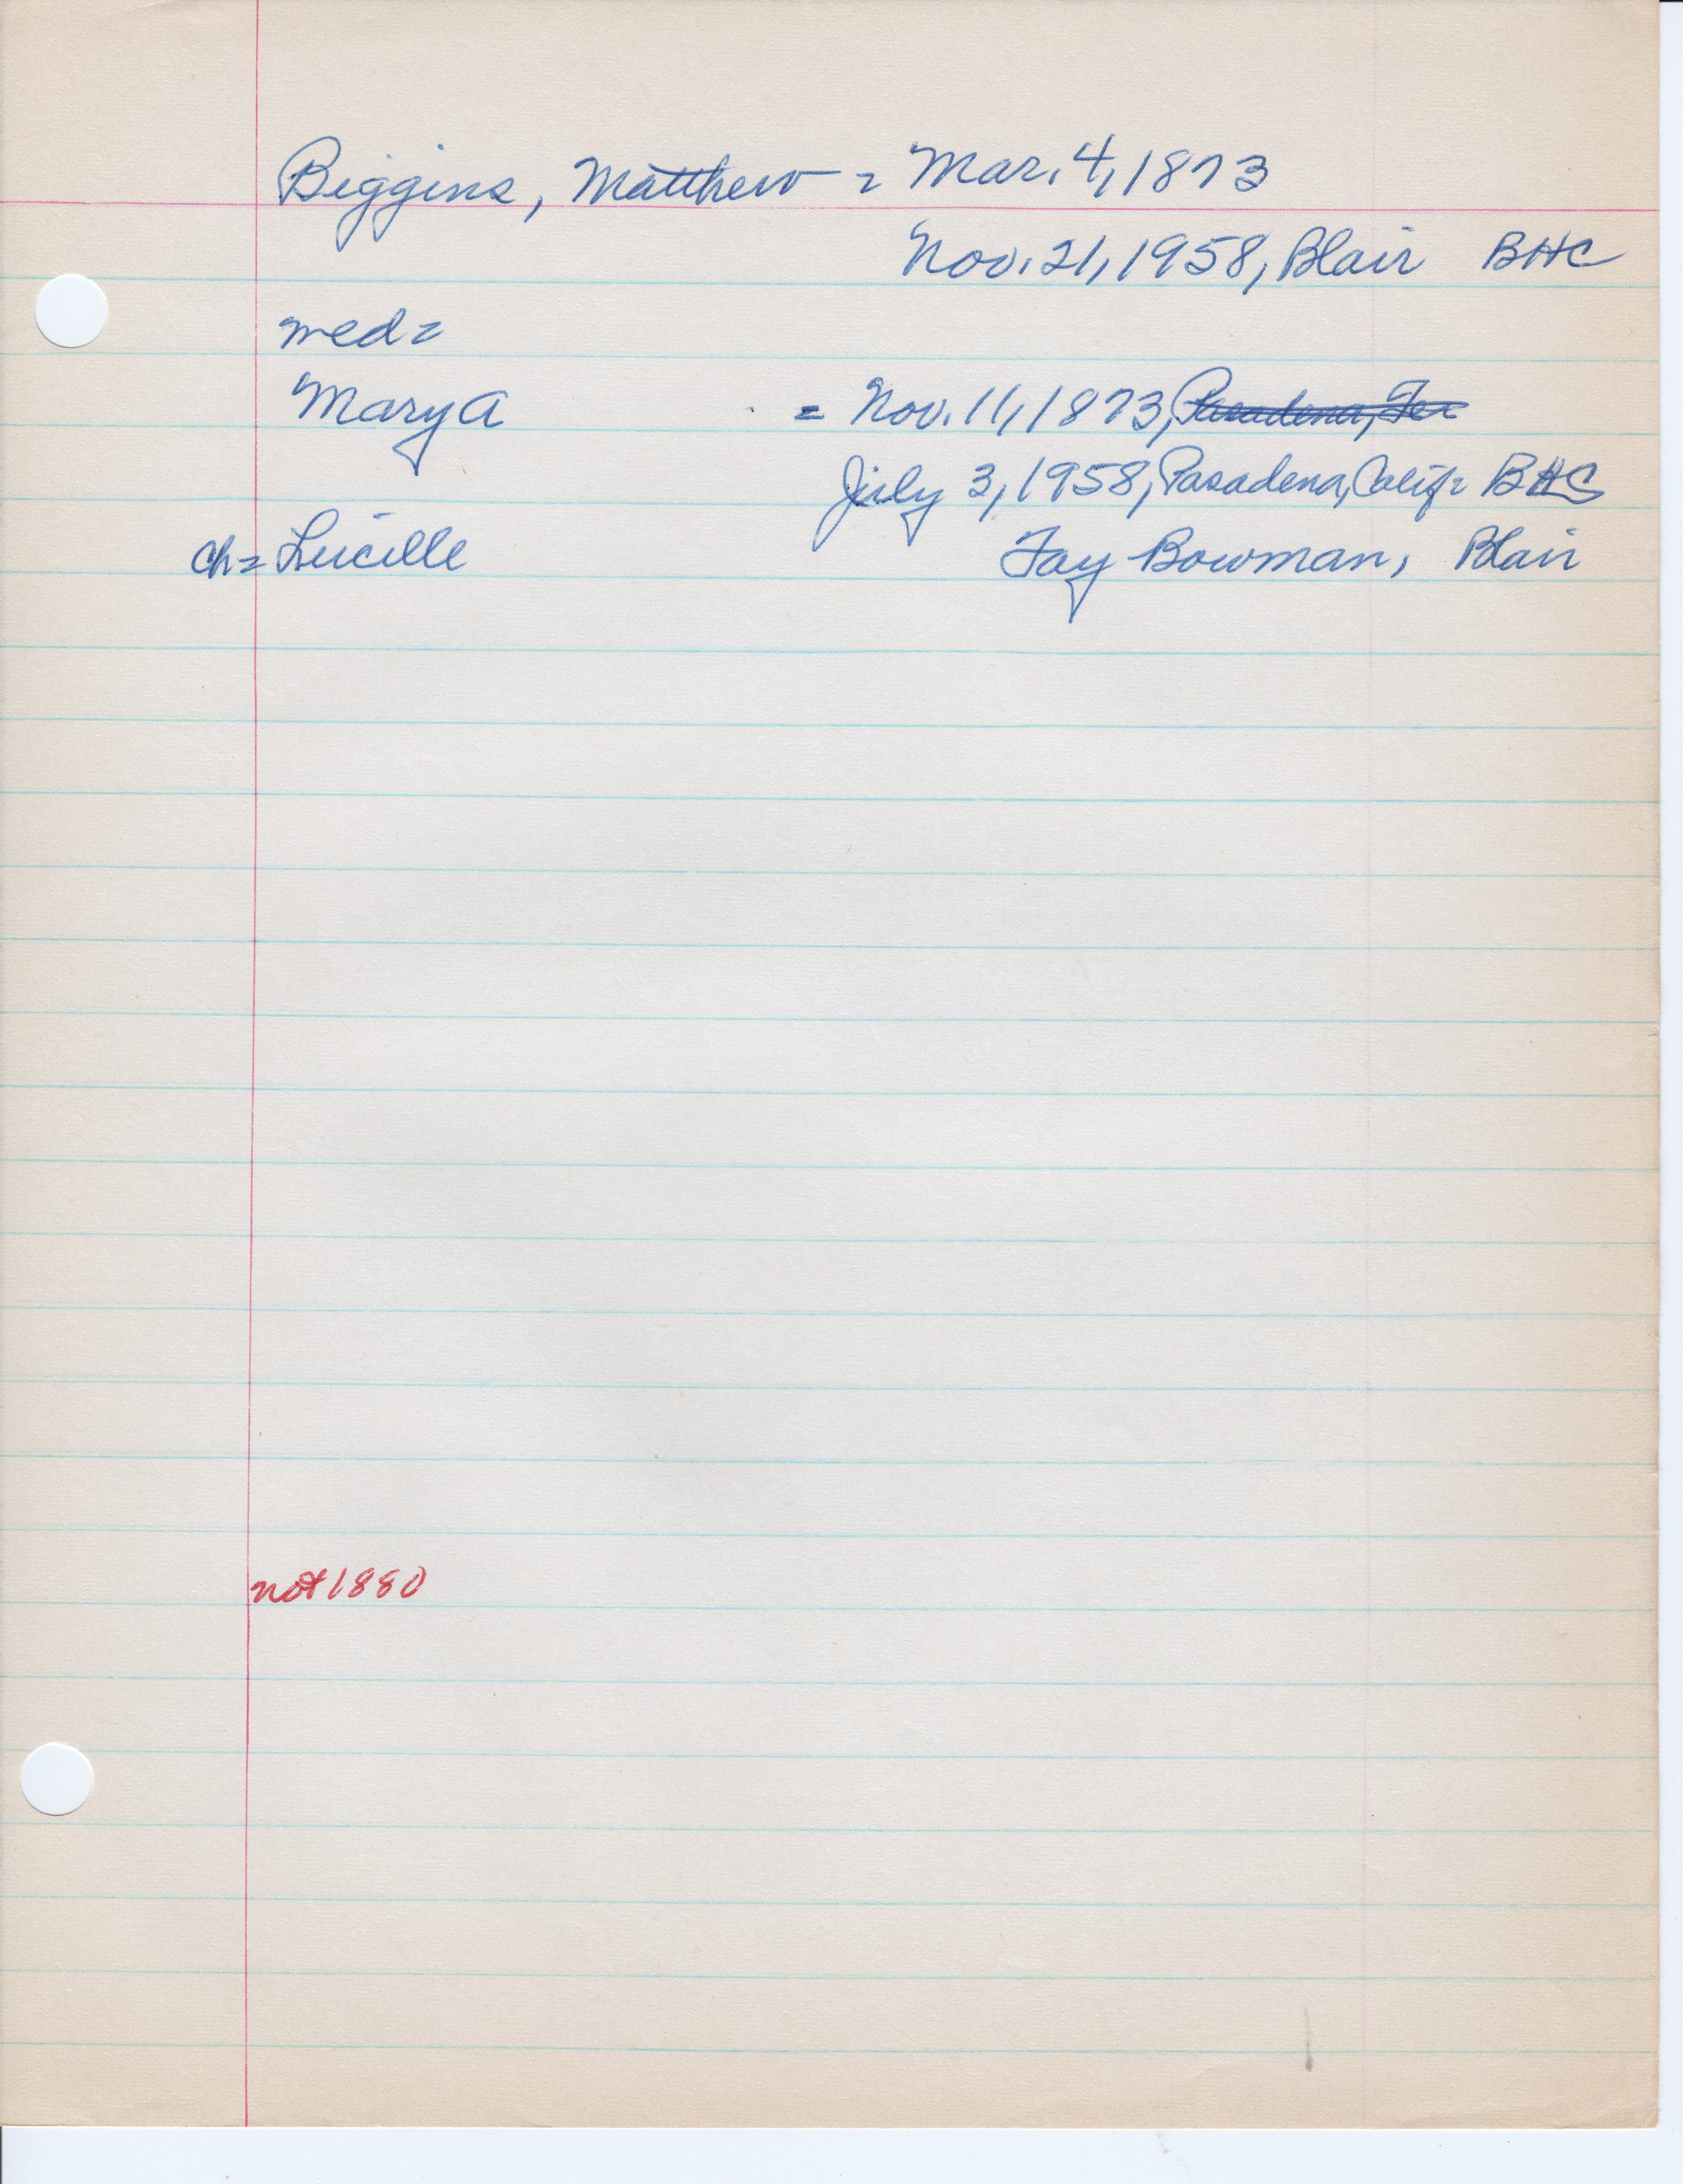 Biggins, Matthew = Mar. 4, 1873
Nov. 21, 1958, Blair BHC
med =
Mary A = Nov. 11, 1873, Pasadena, Tex
July 3, 1958, Pasadena, Calif = BHC
ch = Lucille Fay Bowman, Blair
not 1880